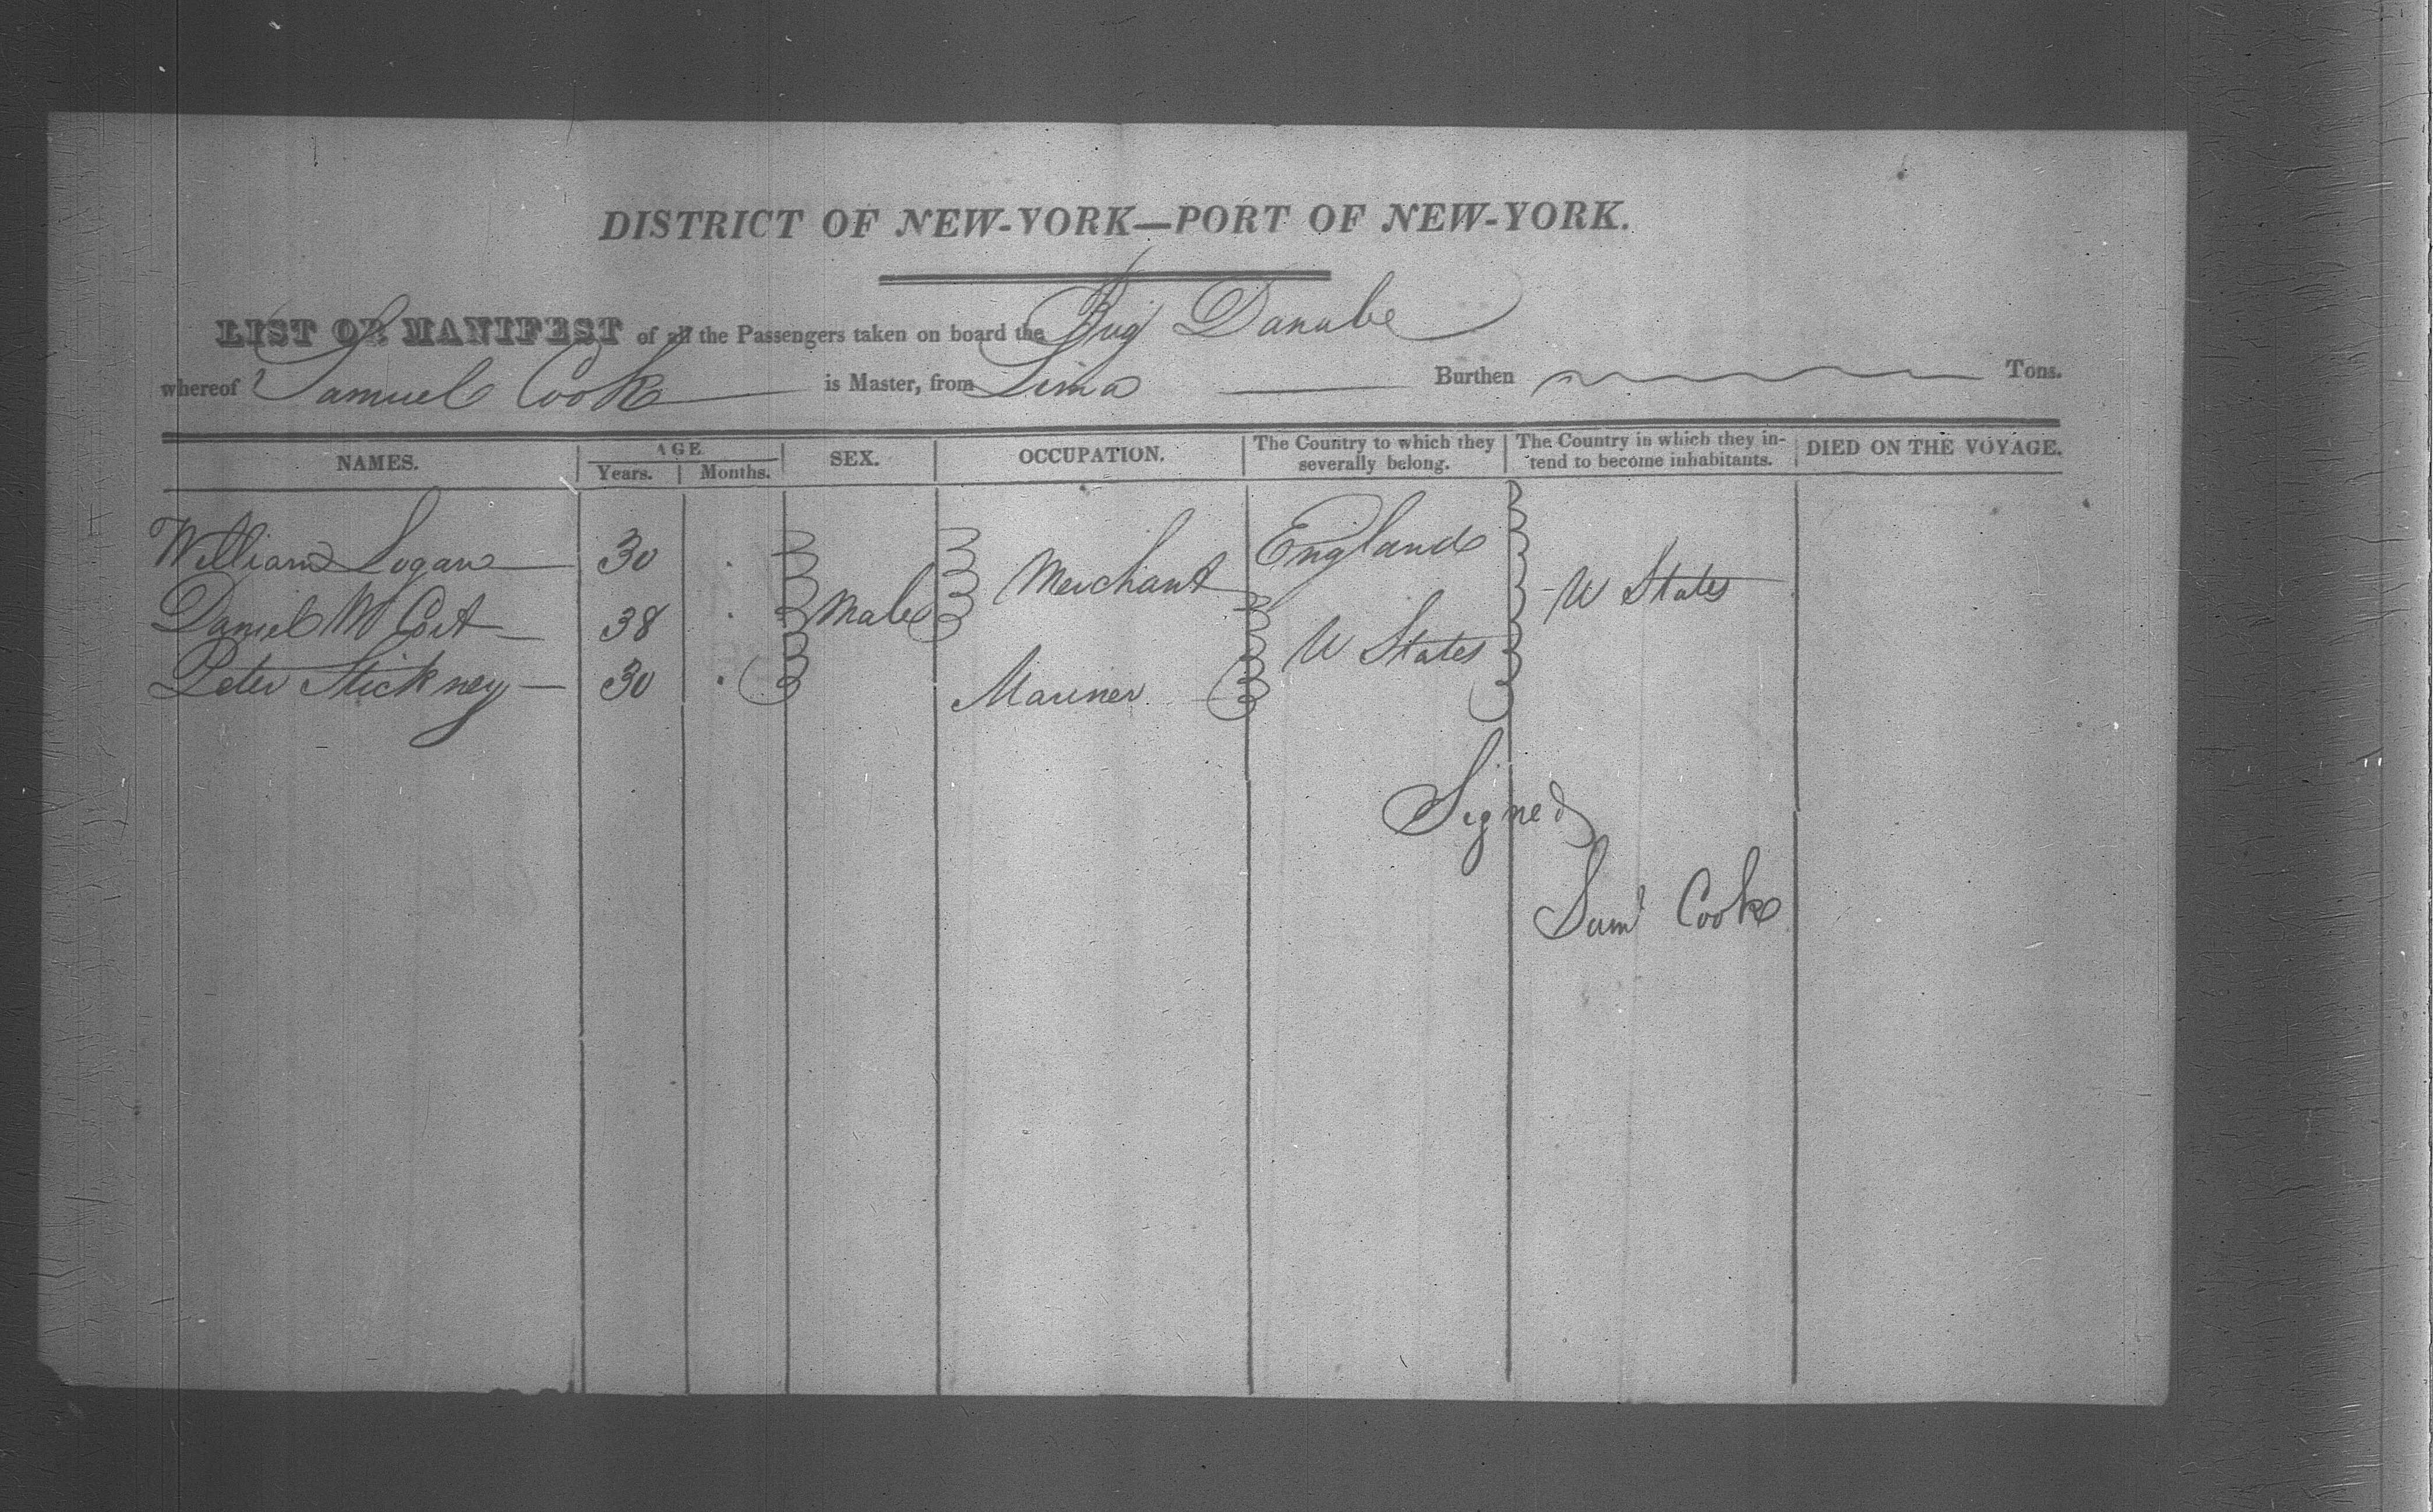 DISTRICT OF NEW-YORK—PORT OF NEW-YORK.
LIST OR MANIFEST of all the Passengers taken on board the Brig Danube
whereof Samuel Cook is Master, from Lima Burthen Tons.
NAMES. AGE Years. Months. SEX. OCCUPATION. The Country to which they severally belong. The Country in which they intend to become inhabitants. DIED ON THE VOYAGE.
William Logan 30 Merchant England
Daniel 38 Male U States U States
Peter Stickney 30 Mariner
Signed
Saml Cook